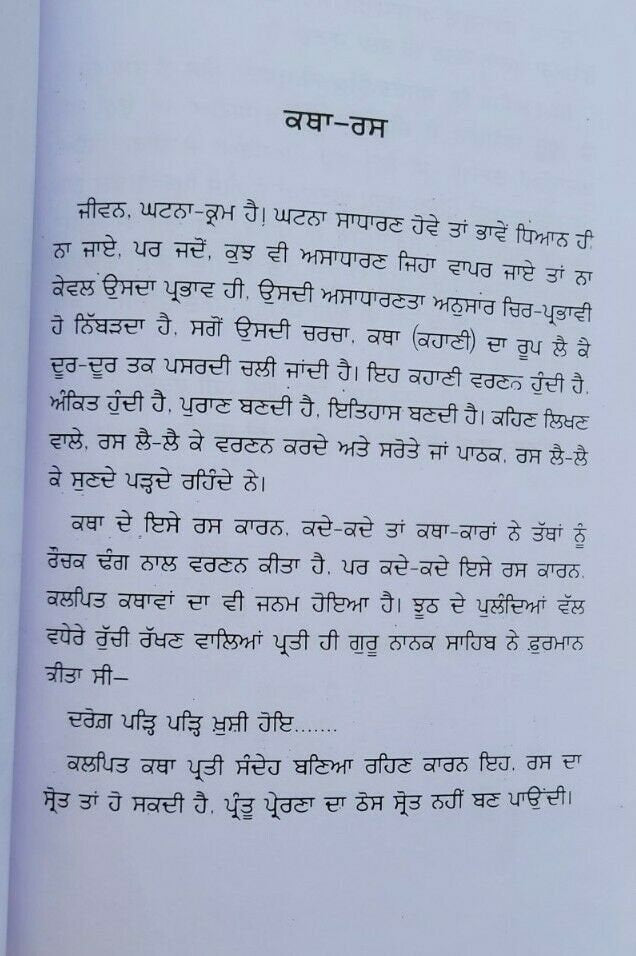 ਕਥਾ-ਰਸ
ਜੀਵਨ, ਘਟਨਾ-ਕ੍ਰਮ ਹੈ। ਘਟਨਾ ਸਾਧਾਰਣ ਹੋਵੇ ਤਾਂ ਭਾਵੇਂ ਧਿਆਨ ਹੀ
ਨਾ ਜਾਏ, ਪਰ ਜਦੋਂ, ਕੁਝ ਵੀ ਅਸਾਧਾਰਣ ਜਿਹਾ ਵਾਪਰ ਜਾਏ ਤਾਂ ਨਾ
ਕੇਵਲ ਉਸਦਾ ਪ੍ਰਭਾਵ ਹੀ, ਉਸਦੀ ਅਸਾਧਾਰਣਤਾ ਅਨੁਸਾਰ ਚਿਰ-ਪ੍ਰਭਾਵੀ
ਹੋ ਨਿੱਬੜਦਾ ਹੈ, ਸਗੋਂ ਉਸਦੀ ਚਰਚਾ, ਕਥਾ (ਕਹਾਣੀ) ਦਾ ਰੂਪ ਲੈ ਕੇ
ਦੂਰ-ਦੂਰ ਤਕ ਪਸਰਦੀ ਚਲੀ ਜਾਂਦੀ ਹੈ। ਇਹ ਕਹਾਣੀ ਵਰਣਨ ਹੁੰਦੀ ਹੈ,
ਅੰਕਿਤ ਹੁੰਦੀ ਹੈ, ਪੁਰਾਣ ਬਣਦੀ ਹੈ, ਇਤਿਹਾਸ ਬਣਦੀ ਹੈ। ਕਹਿਣ ਲਿਖਣ
ਵਾਲੇ, ਰਸ ਲੈ-ਲੈ ਕੇ ਵਰਣਨ ਕਰਦੇ ਅਤੇ ਸਰੋਤੇ ਜਾਂ ਪਾਠਕ, ਰਸ ਲੈ-ਲੈ
ਕੇ ਸੁਣਦੇ ਪੜ੍ਹਦੇ ਰਹਿੰਦੇ ਨੇ।
ਕਥਾ ਦੇ ਇਸੇ ਰਸ ਕਾਰਨ, ਕਦੇ-ਕਦੇ ਤਾਂ ਕਥਾ-ਕਾਰਾਂ ਨੇ ਤੱਥਾਂ ਨੂੰ
ਰੌਚਕ ਢੰਗ ਨਾਲ ਵਰਣਨ ਕੀਤਾ ਹੈ, ਪਰ ਕਦੇ-ਕਦੇ ਇਸੇ ਰਸ ਕਾਰਨ,
ਕਲਪਿਤ ਕਥਾਵਾਂ ਦਾ ਵੀ ਜਨਮ ਹੋਇਆ ਹੈ। ਝੂਠ ਦੇ ਪੁਲੰਦਿਆਂ ਵੱਲ
ਵਧੇਰੇ ਰੁੱਚੀ ਰੱਖਣ ਵਾਲਿਆਂ ਪ੍ਰਤੀ ਹੀ ਗੁਰੂ ਨਾਨਕ ਸਾਹਿਬ ਨੇ ਫ਼ੁਰਮਾਨ
ਕੀਤਾ ਸੀ–
ਦਰੋਗ਼ ਪੜ੍ਹਿ ਪੜ੍ਹਿ ਖ਼ੁਸ਼ੀ ਹੋਇ.......
ਕਲਪਿਤ ਕਥਾ ਪ੍ਰਤੀ ਸੰਦੇਹ ਬਣਿਆ ਰਹਿਣ ਕਾਰਨ ਇਹ, ਰਸ ਦਾ
ਸ੍ਰੋਤ ਤਾਂ ਹੋ ਸਕਦੀ ਹੈ, ਪ੍ਰੰਤੂ ਪ੍ਰੇਰਣਾ ਦਾ ਠੋਸ ਸ੍ਰੋਤ ਨਹੀਂ ਬਣ ਪਾਉਂਦੀ।